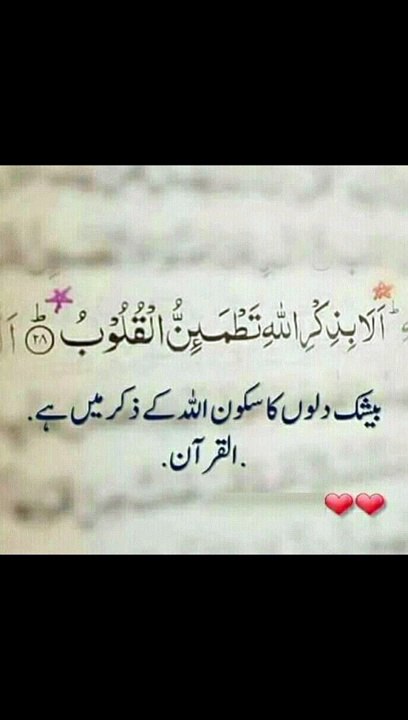 اَلَا بِذِكْرِ اللّٰهِ تَطْمَىِٕنُّ الْقُلُوْبُ ؕ﴿۲۸﴾
بیشک دلوں کا سکون اللہ کے ذکر میں ہے.
.القرآن.